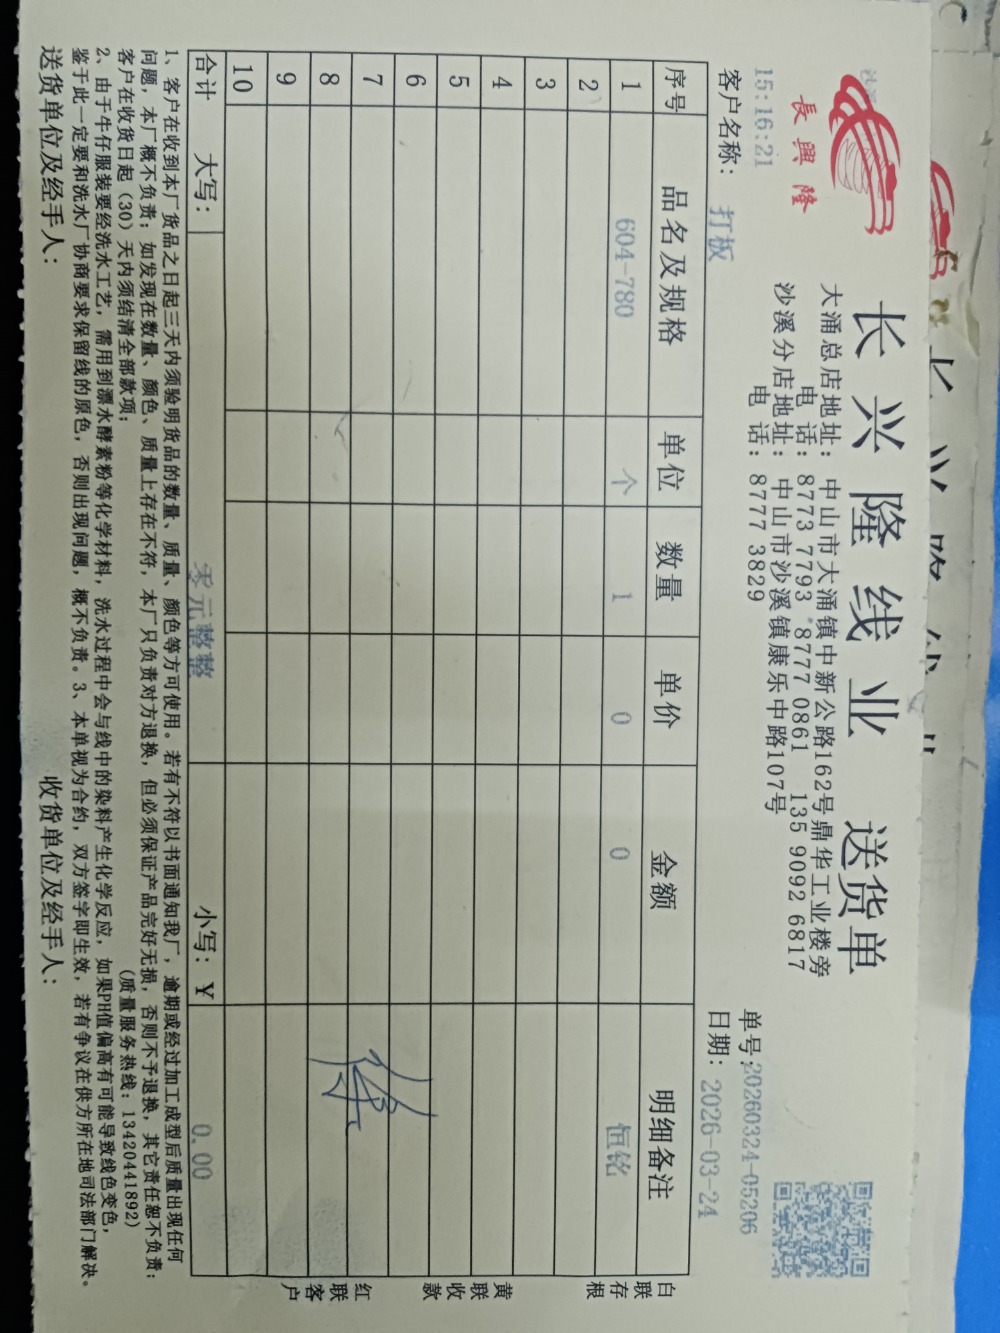 長興隆
长兴隆线业 送货单
大涌总店地址：中山市大涌镇中新公路162号鼎华工业楼旁
电话：8773 7793 8777 0861 135 9092 6817
沙溪分店地址：中山市沙溪镇康乐中路107号
电话：8777 3829
单号:20260324-05206
15:16:21
客户名称：打板
日期：2026-03-24
序号 品名及规格 单位 数量 单价 金额 明细备注
1 604-780 个 1 0 0 恒铭
2
3
4
5
6
7
8
9
10
合计 大写：零元整整 小写：¥ 0.00
白联存根
黄联收款
红联客户
1、客户在收到本厂货品之日起三天内须验明货品的数量、质量、颜色等方可使用。若有不符以书面通知我厂，逾期或经过加工成型后质量出现任何
问题，本厂概不负责；如发现在数量、颜色、质量上存在不符，本厂只负责对方退换，但必须保证产品完好无损，否则不予退换，其它责任恕不负责；
客户在收货日起（30）天内须结清全部款项； (质量服务热线：13420441892)
2、由于牛仔服装要经洗水工艺，需用到漂水酵素粉等化学材料，洗水过程中会与线中的染料产生化学反应，如果PH值偏高有可能导致线色变色，
鉴于此一定要和洗水厂协商要求保留线的原色，否则出现问题，概不负责。3、本单视为合约，双方签字即生效，若有争议在供方所在地司法部门解决。
送货单位及经手人： 收货单位及经手人：